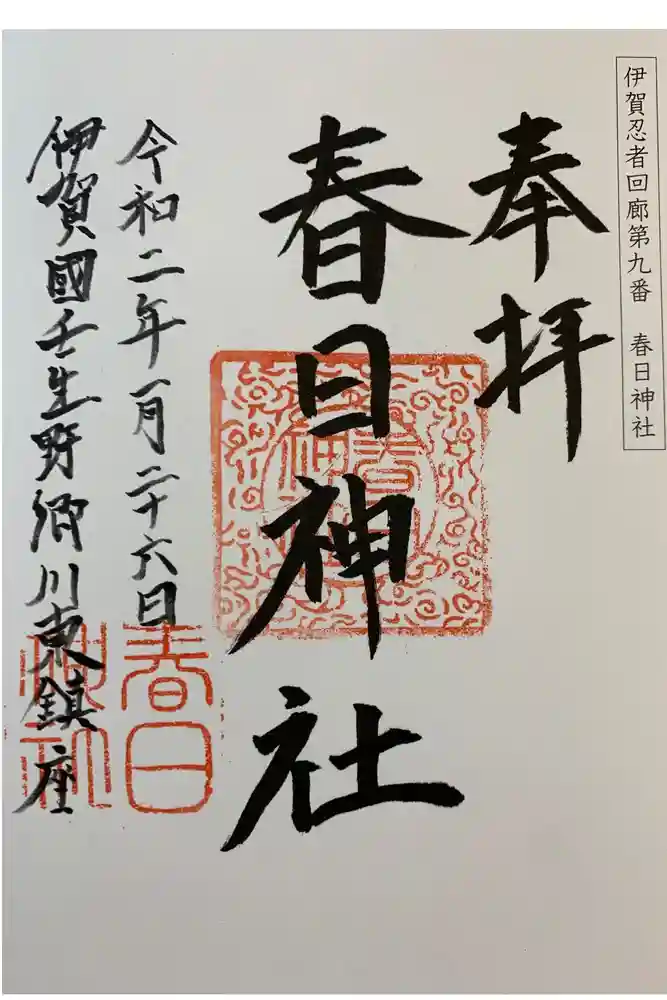 伊賀忍者回廊第九番　春日神社
奉拝
春日神社
令和二年一月二十六日
伊賀國壬生野郷川東鎮座
春日
神社